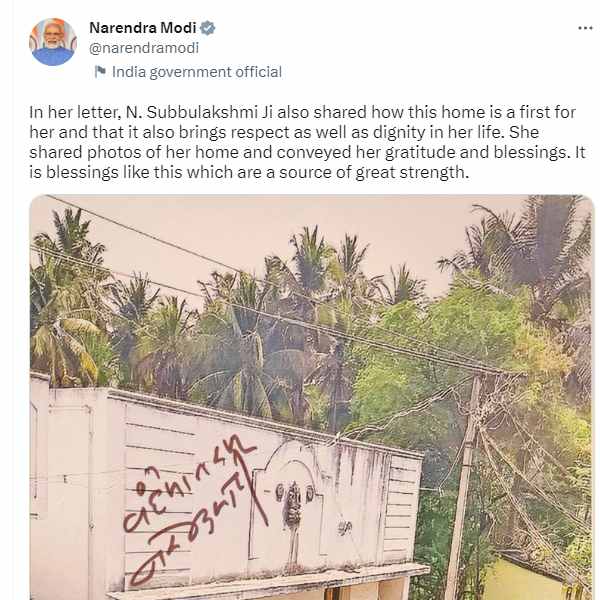 Narendra Modi
@narendramodi
India government official
In her letter, N. Subbulakshmi Ji also shared how this home is a first for
her and that it also brings respect as well as dignity in her life. She
shared photos of her home and conveyed her gratitude and blessings. It
is blessings like this which are a source of great strength.